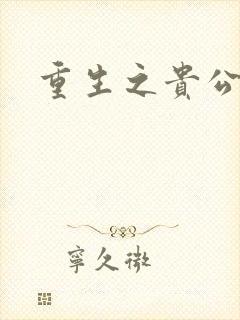 重生之貴公
寧久微